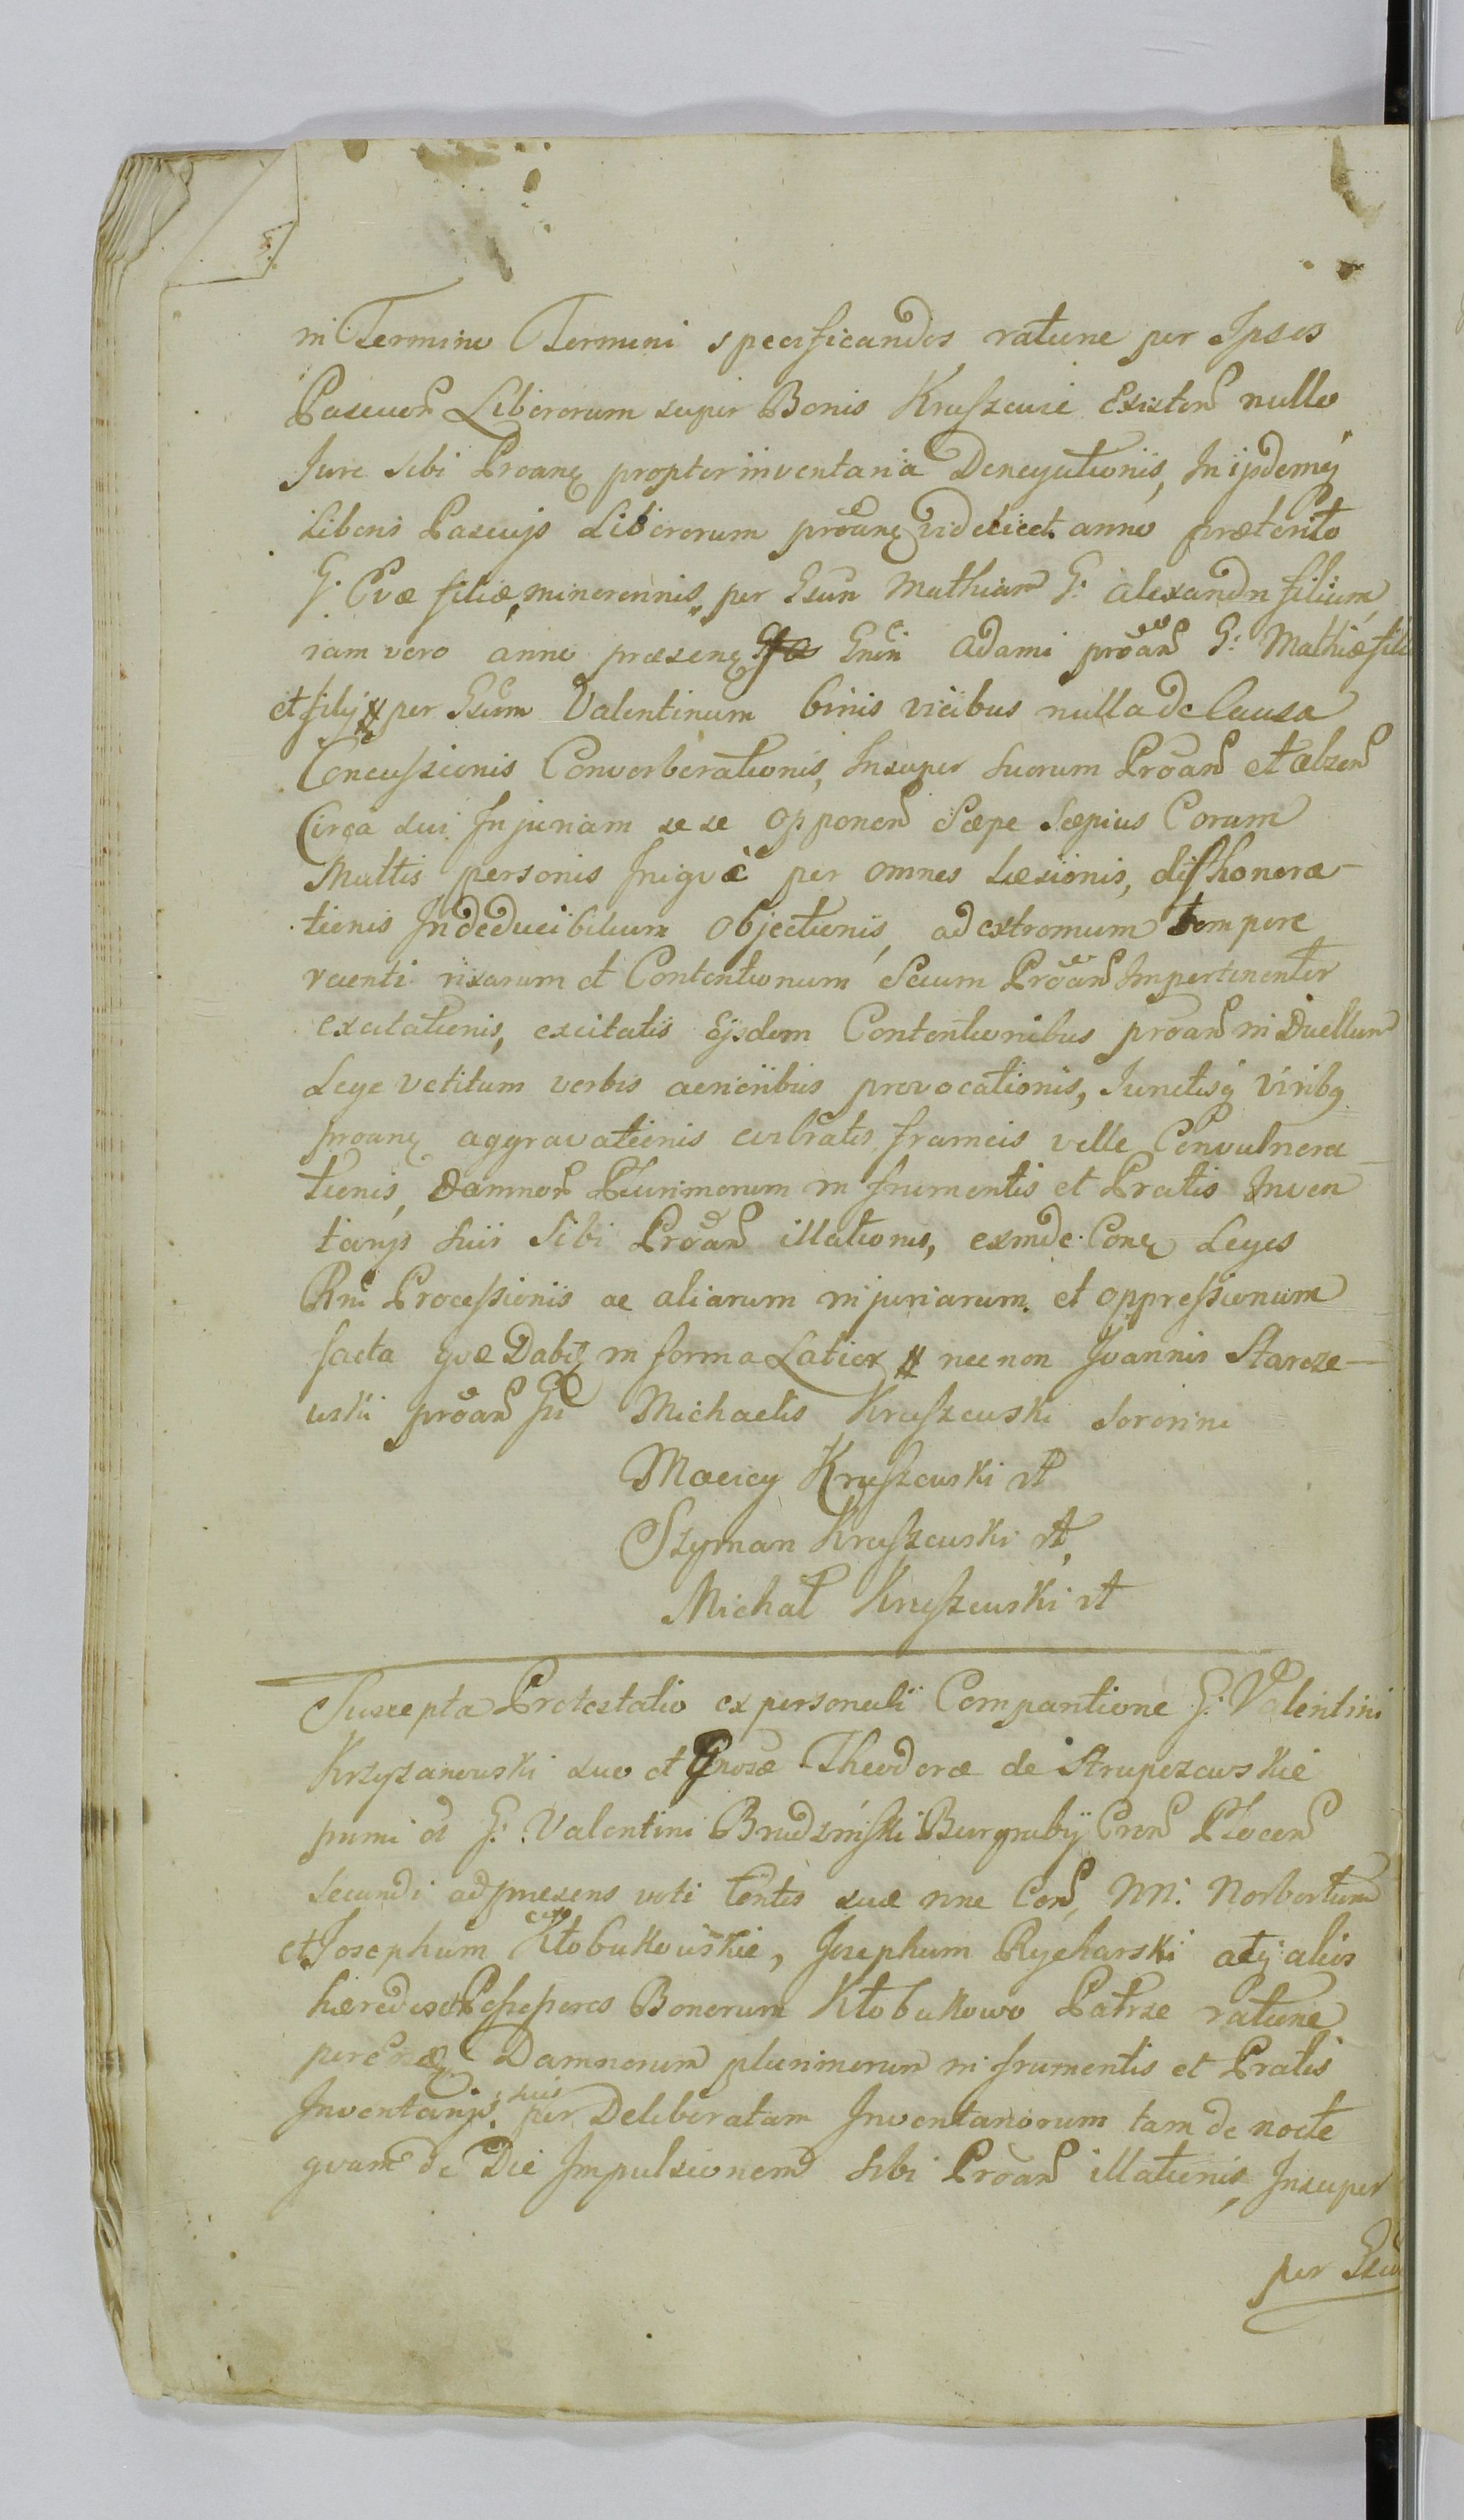 in Termino Termini specificandos ratione per Ipsos
Pascuor Liberorum super Bonis Kruszewie Existen nullo
Jure sibi Proanę propter inventaria Denegationis, In ijsdemq
Liberis Pascujs Liberorum proanę videlicet anno præterito
G: Evæ filiæ minorennis per Gsum Mathiam G: Alexandri filium,
iam vero anno præsenę Gnen Adami proan G: Mathiæ fili
et filij # per Gsum Valentinum binis vicibus nulla de Causa
Concussionis Converberationis, Insuper suorum Proan et
Circa sui Injuriam sese opponen Sæpe Sæpius Coram
Multis personis Iniquè per omnes Læsionis, dishonora-
tionis Indeducibilium objectionis, ad extremum tempore
recenti rixarum et Contentionum Secum Proan Impertinenter
excitationis, excitatis Ejsdem Contentionibus proan in Duellum
Lege vetitum verbis acrioribus provocationis, Junctisq viribq
proanę aggravationis evibratis frameis velle Convulnera
tionis, Damnor Plurimorum in frumentis et Pratis Inven
tarijs suis Sibi Proan illationis, exinde Conę Leges
Rni Processionis ac aliarum injuriarum et oppressionum
facta quæ Dabit in forma Latior # nec non Joannis Starcze-
wski proan Michaelis Kruszewski Sororini
Maciey Kruszewski
Szyman Kruszewski
Michał Kruszewski
Suscepta Protestatio ex personali Comparitione G: Valentini
Krzyzanowski suo et Gnosæ Theodoræ de Strupczewskie
primi et G: Valentini Brudziński Burgrabij Cren Plocen
secundi ad præsens voti tentis suæ nne Con, NN: Norbertum
et Josephum Kłobukowskie, Josephum Rycharski atq alios
hæredes et Possessores Bonorum Kłobukowo Patrze ratione
per Damnorum plurimorum in frumentis et Pratis
Inventarijs suis per Deliberatam Inventariorum tam de nocte
quam de Die Impulsionem sibi Proan illationis, Insuper
per